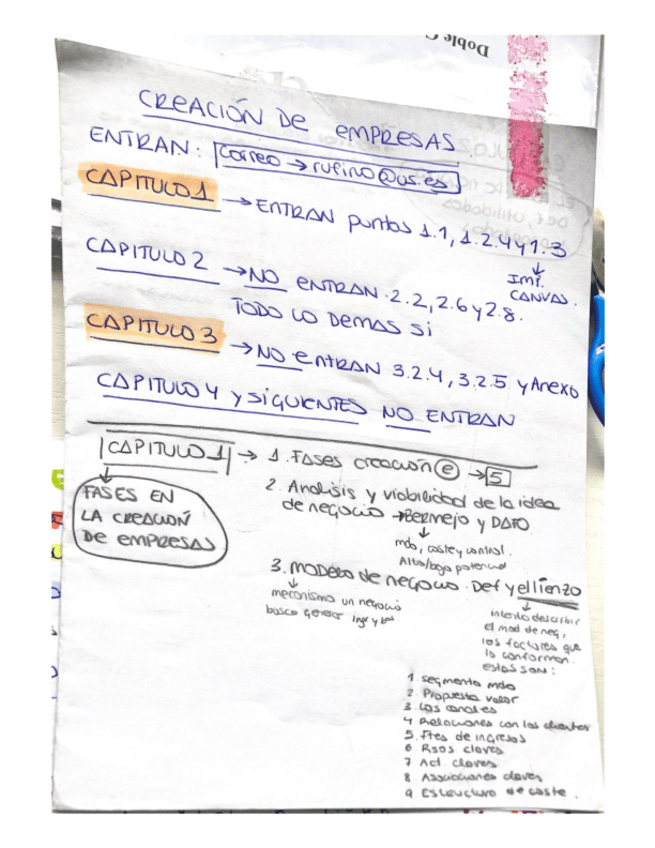 Doble G
CREACIÓN DE EMPRESAS
ENTRAN: Correo → rufino@us.es
CAPITULO 1 → ENTRAN puntos 1.1, 1.2.4 y 1.3
↓
Imt.
CANVAS.
CAPITULO 2 → NO ENTRAN 2.2, 2.6 y 2.8.
TODO LO DEMAS SI
CAPITULO 3 → NO entran 3.2.4, 3.2.5 y Anexo
CAPITULO 4 y siguientes NO ENTRAN
CAPITULO 1 → 1. Fases creación e → 5
↓
FASES EN
LA CREACIÓN
DE EMPRESAS
2. Analisis y viabilidad de la idea
de negocio → Bermejo y DATO
↓
mdo, coste y control.
Alto/bajo potencial
3. modelo de negocio. Def y el lienzo
↓
mecanismo un negocio
busca generar ingr y
↓
intento describir
el mod de neg,
los factores que
lo conforman.
estos son:
1. segmento mdo
2. Propuesta valor
3. Los canales
4 Relaciones con los clientes
5. Ftes de ingresos
6 Rsos claves
7 Act. claves
8 Asociaciones claves
9. Estructura de coste.